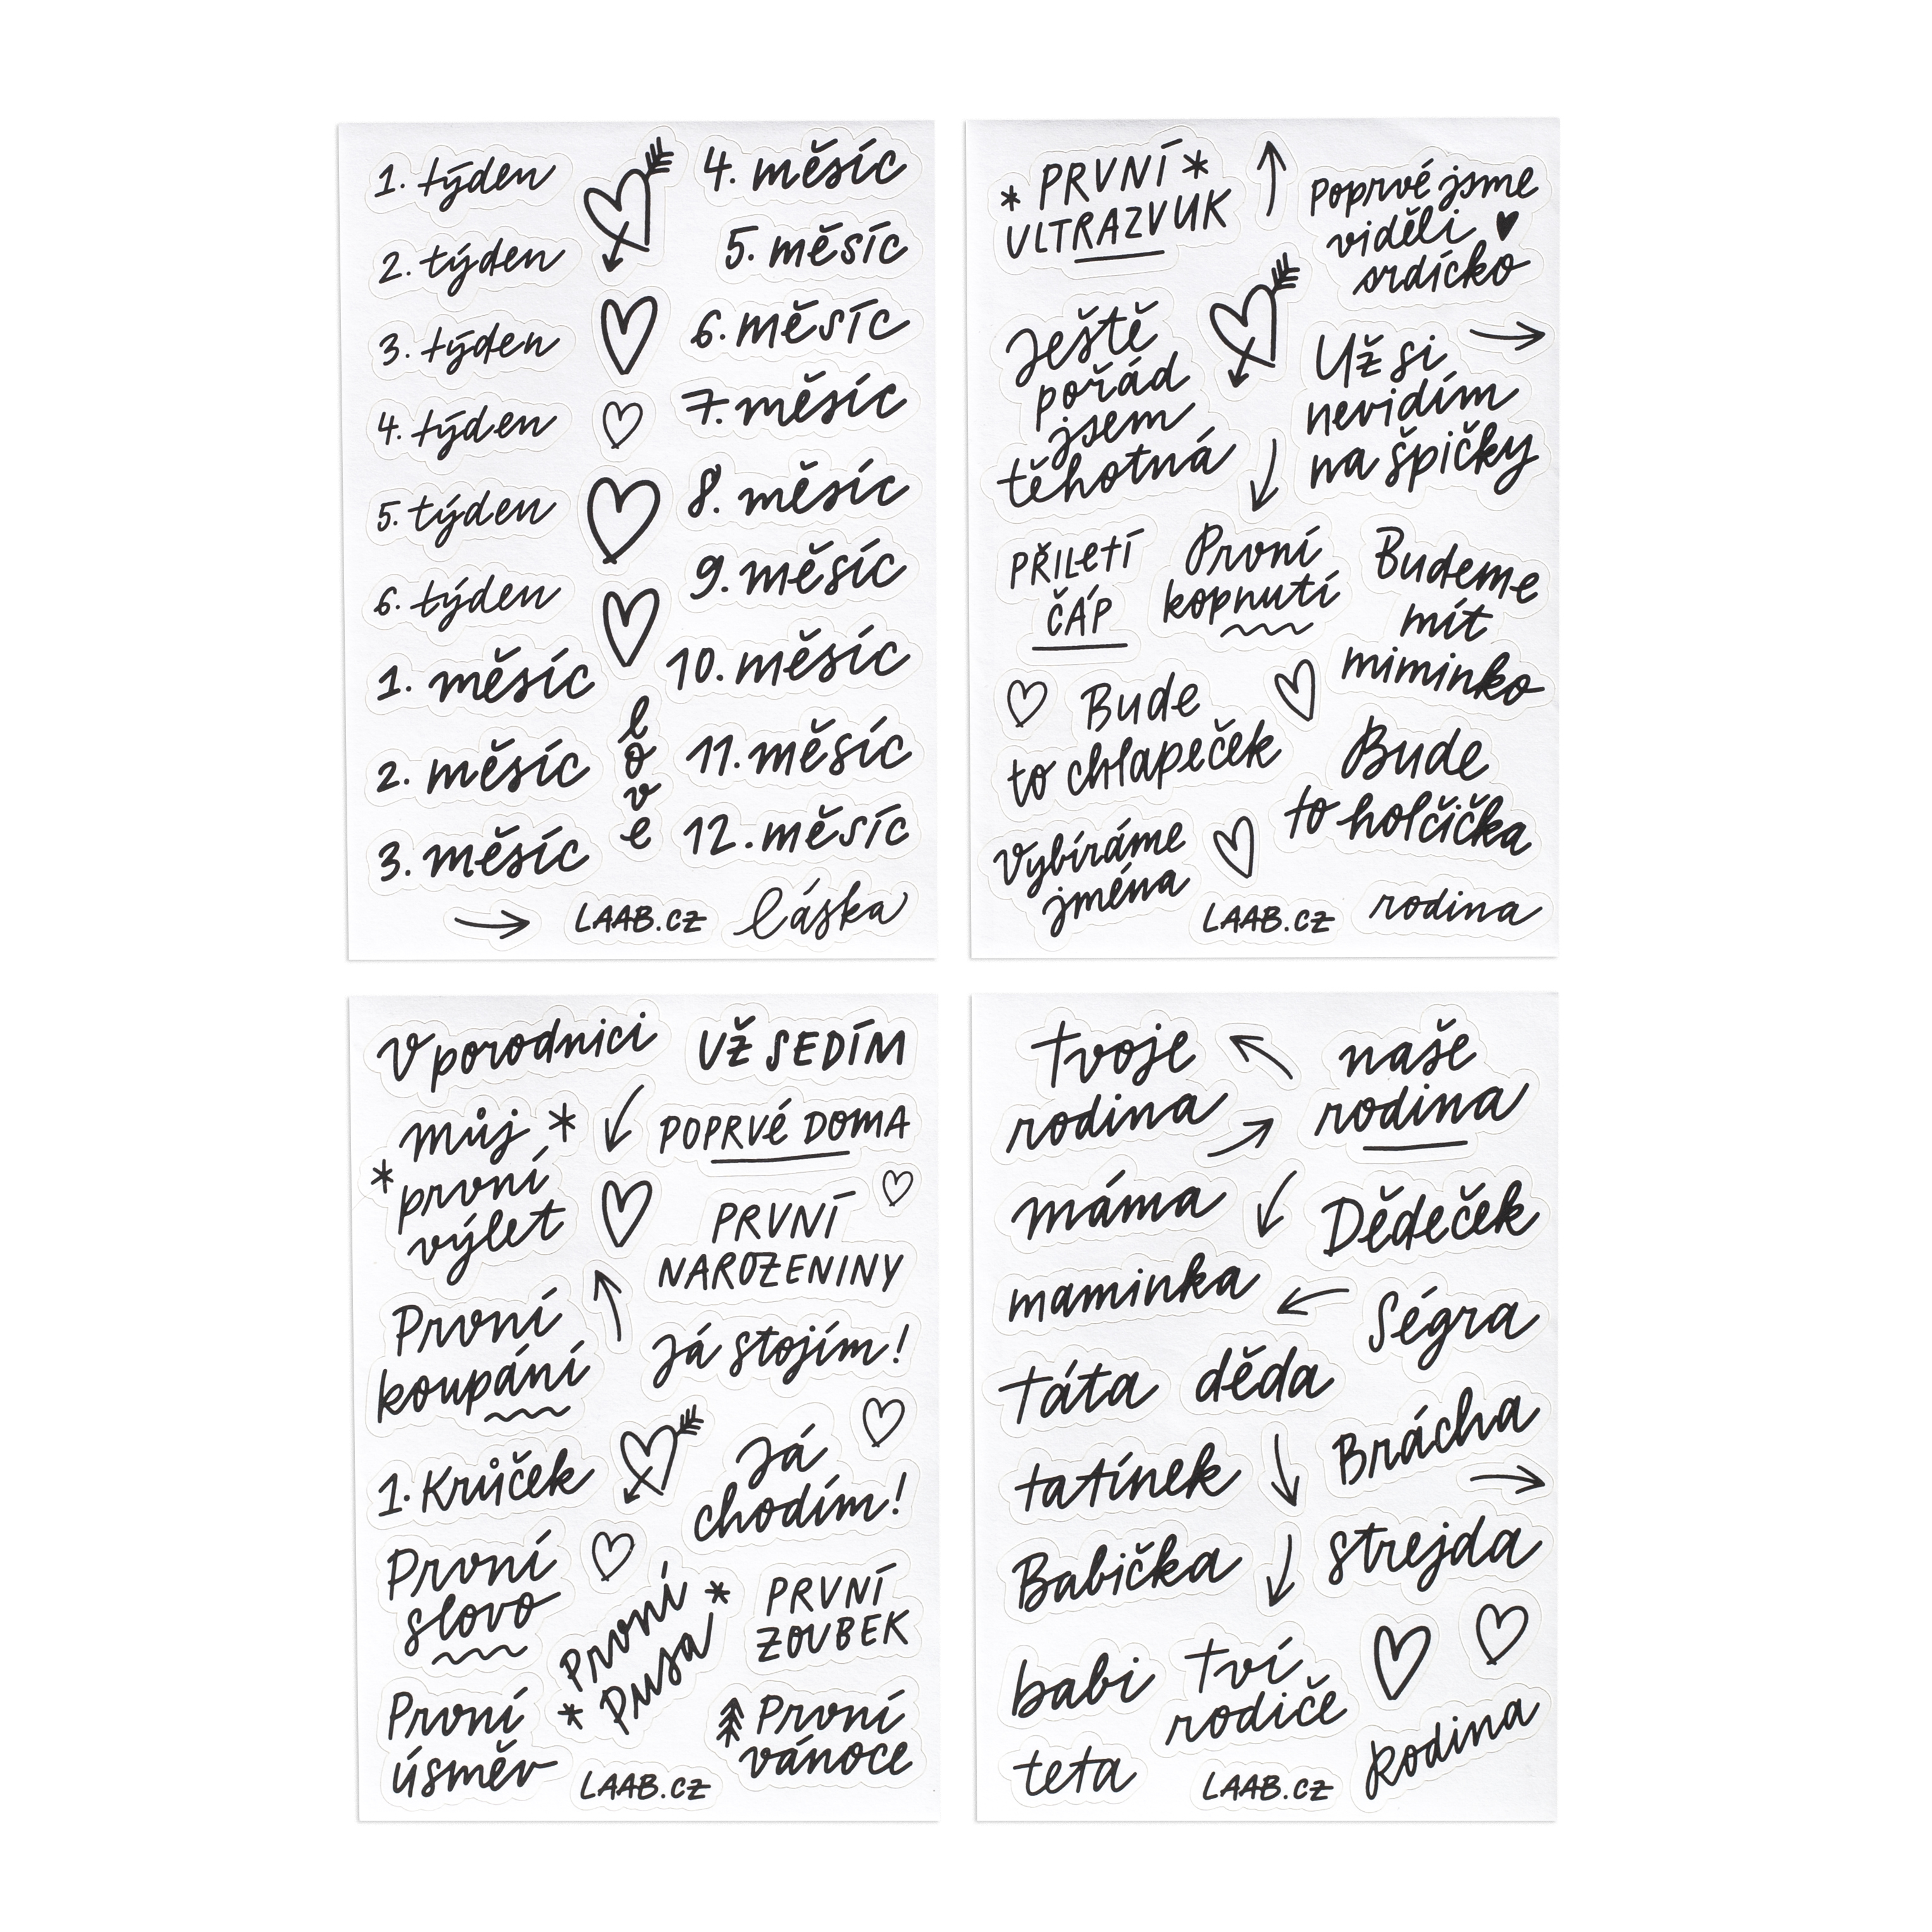 1. týden
2. týden
3. týden
4. týden
5. týden
6. týden
1. měsíc
2. měsíc
3. měsíc
love
4. měsíc
5. měsíc
6. měsíc
7. měsíc
8. měsíc
9. měsíc
10. měsíc
11. měsíc
12. měsíc
LAAB.CZ
láska
* PRVNÍ *
ULTRAZVUK
Poprvé jsme
viděli
srdíčko
Ještě
pořád
jsem
těhotná
Už si
nevidím
na špičky
PŘILETÍ
ČÁP
První
kopnutí
Budeme
mít
miminko
Bude
to chlapeček
Bude
to holčička
Vybíráme
jména
LAAB.CZ
rodina
V porodnici
UŽ SEDÍM
můj *
* první
výlet
POPRVÉ DOMA
PRVNÍ
NAROZENINY
První
koupání
Já stojím!
1. Krůček
Já
chodím!
První
slovo
První *
* Pusa
PRVNÍ
ZOUBEK
První
úsměv
První
vánoce
LAAB.CZ
tvoje
rodina
naše
rodina
máma
Dědeček
maminka
Ségra
táta
děda
Brácha
tatínek
Babička
strejda
babi
tví
rodiče
teta
LAAB.CZ
Rodina